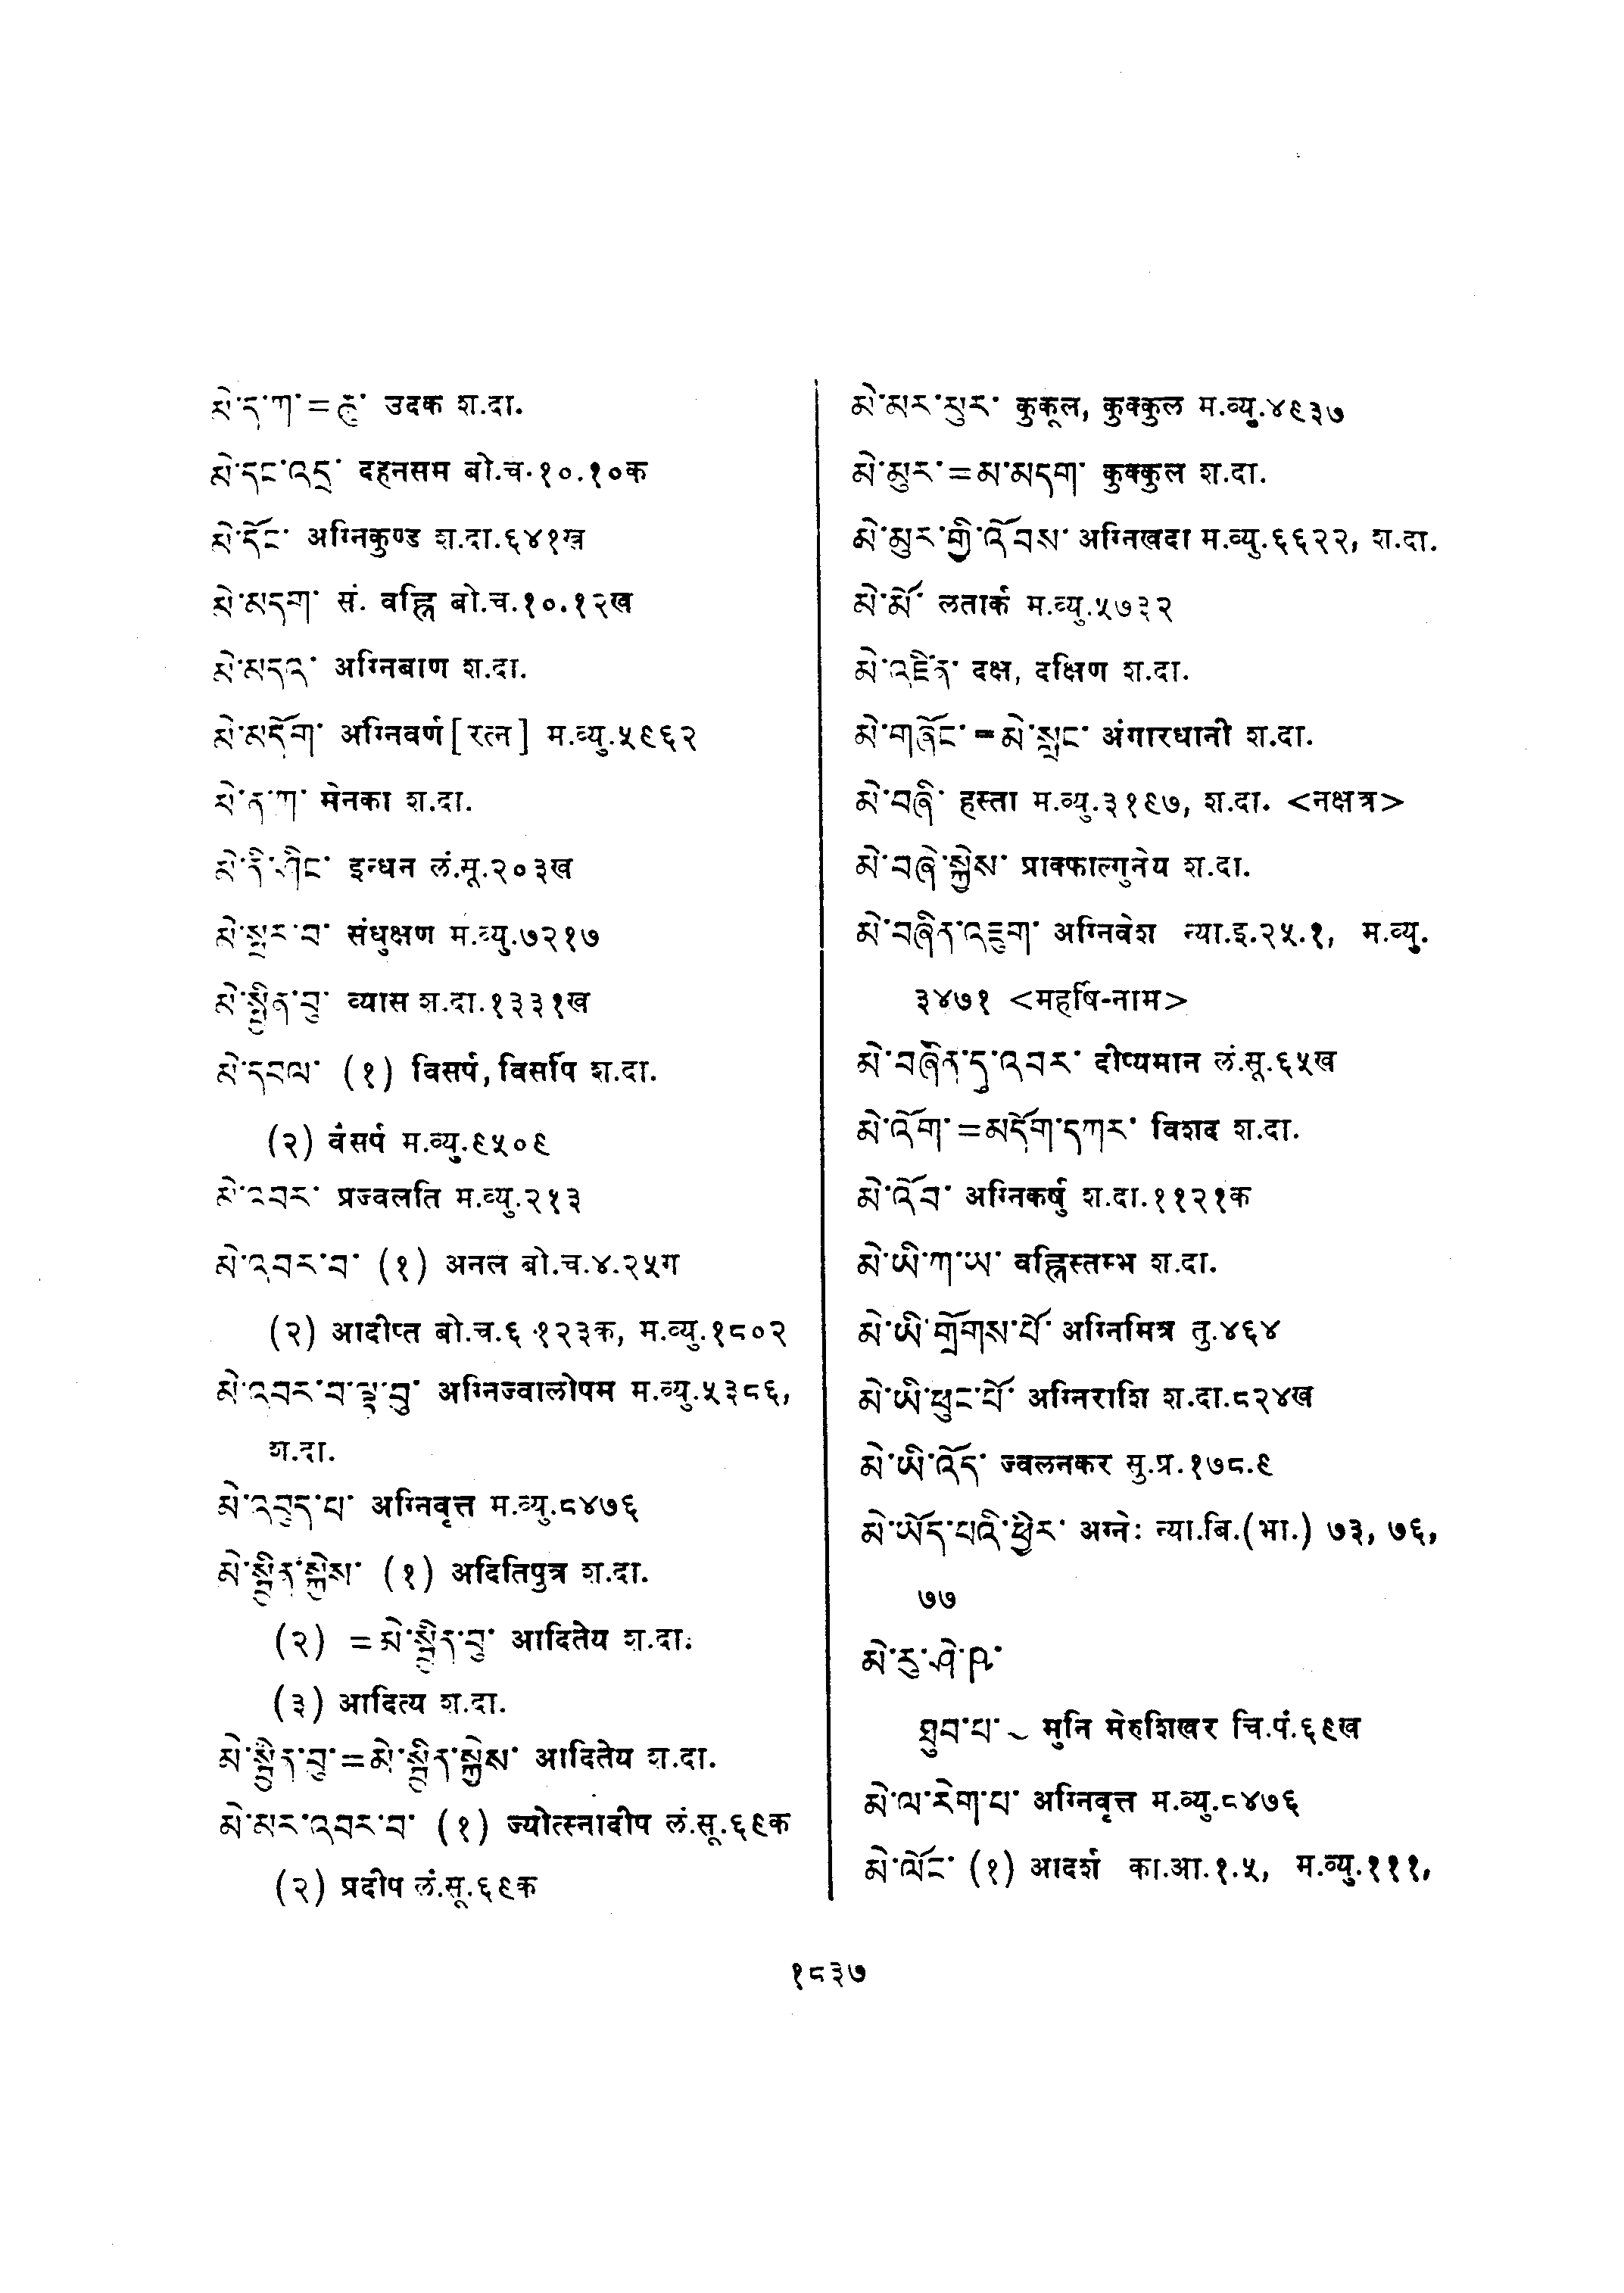 མེ་ད་ཀ་=ཆུ་ उदक श.दा.
མེ་དང་འདྲ་ दहनसम बो.च.१०.१०क
མེ་དོང་ अग्निकुण्ड श.दा.६४१ख
མེ་མདག་ सं. वह्नि बो.च.१०.१२ख
མེ་མདའ་ अग्निबाण श.दा.
མེ་མདོག་ अग्निवर्ण [रत्न] म.व्यु.५९६२
མེ་ན་ཀ་ मेनका श.दा.
མེ་ནི་ཤིང་ इन्धन लं.सू.२०३ख
མེ་སྤར་བ་ संधुक्षण म.व्यु.७२१७
མེ་སྤྱིན་བུ་ व्यास श.दा.१३३१ख
མེ་དབལ་ (१) विसर्प, विसर्पि श.दा.
(२) वंसर्प म.व्यु.९५०९
མེ་འབར་ प्रज्वलति म.व्यु.२१३
མེ་འབར་བ་ (१) अनल बो.च.४.२५ग
(२) आदीप्त बो.च.६.१२३क, म.व्यु.१८०२
མེ་འབར་བ་ལྟ་བུ་ अग्निज्वालोपम म.व्यु.५३८६,
श.दा.
མེ་འབུད་པ་ अग्निवृत्त म.व्यु.८४७६
མེ་སྦྱིན་སྐྱེས་ (१) अदितिपुत्र श.दा.
(२) =མེ་སྦྱིན་བུ་ आदितेय श.दा.
(३) आदित्य श.दा.
མེ་སྦྱིན་བུ་=མེ་སྦྱིན་སྐྱེས་ आदितेय श.दा.
མེ་མར་འབར་བ་ (१) ज्योत्स्नादीप लं.सू.६९क
(२) प्रदीप लं.सू.६९क
མེ་མར་མུར་ कुकूल, कुक्कुल म.व्यु.४९३७
མེ་མུར་=མ་མདག་ कुक्कुल श.दा.
མེ་མུར་གྱི་འོབས་ अग्निखदा म.व्यु.६६२२, श.दा.
མེ་མོ་ लतार्क म.व्यु.५७३२
མེ་འཛིན་ दक्ष, दक्षिण श.दा.
མེ་གཞོང་=མེ་སྣང་ अंगारधानी श.दा.
མེ་བཞི་ हस्ता म.व्यु.३१९७, श.दा. <नक्षत्र>
མེ་བཞི་སྐྱེས་ प्राक्फाल्गुनेय श.दा.
མེ་བཞིན་འཇུག་ अग्निवेश न्या.इ.२५.१, म.व्यु.
३४७१ <महर्षि-नाम>
མེ་བཞིན་དུ་འབར་ दीप्यमान लं.सू.६५ख
མེ་འོག་=མདོག་དཀར་ विशद श.दा.
མེ་འོབ་ अग्निकर्षु श.दा.११२१क
མེ་ཡི་ཀ་ཡ་ वह्निस्तम्भ श.दा.
མེ་ཡི་གྲོགས་པོ་ अग्निमित्र तु.४६४
མེ་ཡི་ཕུང་པོ་ अग्निराशि श.दा.८२४ख
མེ་ཡི་འོད་ ज्वलनकर सु.प्र.१७८.९
མེ་ཡོད་པའི་ཕྱིར་ अग्नेः न्या.बि.(भा.) ७३, ७६,
७७
མེ་རུ་ཤེ་ཁ་
ཐུབ་པ་ ~ मुनि मेरुशिखर चि.पं.६९ख
མེ་ལ་རེག་པ་ अग्निवृत्त म.व्यु.८४७६
མེ་ལོང་ (१) आदर्श का.आ.१.५, म.व्यु.१११,
१८३७